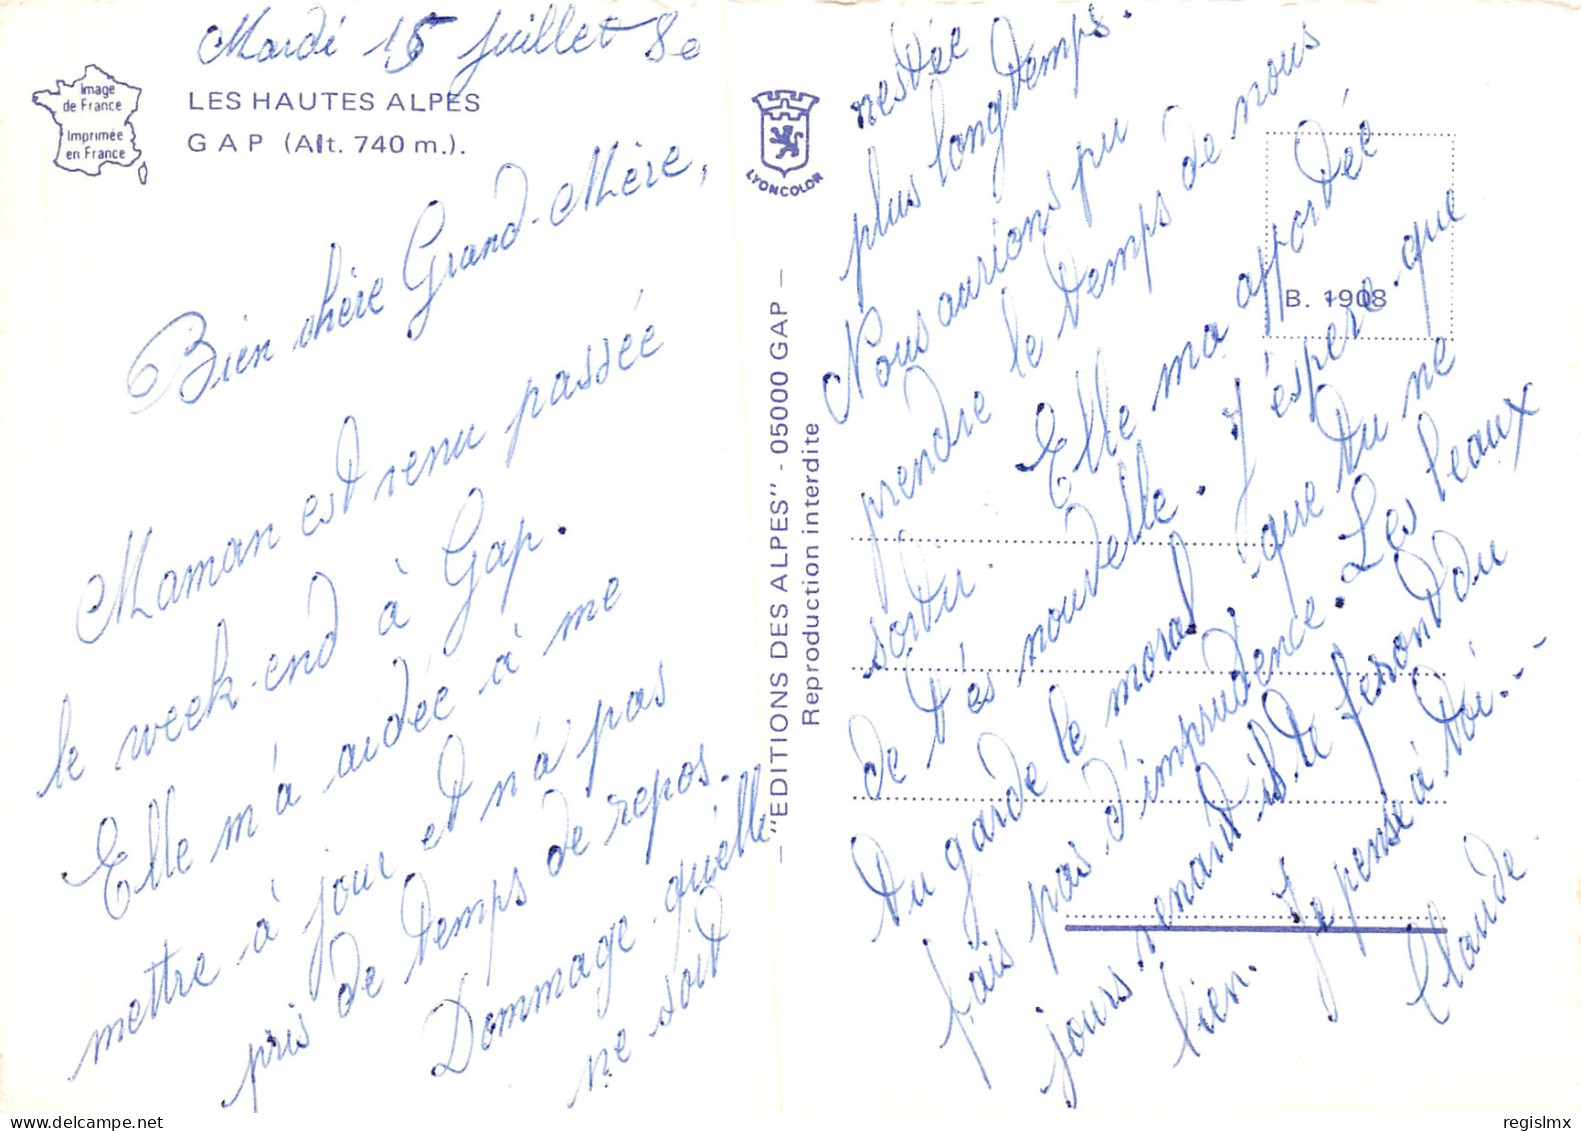 Mardi 15 Juillet 80
Image
de France
Imprimée
en France
LES HAUTES ALPES
GAP (Alt. 740 m.).
Bien chère Grand-Mère,
Maman est venu passée
le week-end à Gap.
Elle m'a aidée à me
mettre à jour et n'a pas
pris de temps de repos.
Dommage qu'elle
ne soit
"EDITIONS DES ALPES" - 05000 GAP -
Reproduction interdite
LYONCOLOR
B. 1908
restée
plus longtemps.
Nous aurions pu
prendre le temps de nous
sortir. Elle ma apportée
de t'és nouvelle. J'éspere que
tu garde le moral, que tu ne
fais pas d'imprudence. Les beaux
jours venant ils te feront du
bien. Je pense à toi...
Claude.
regislmx